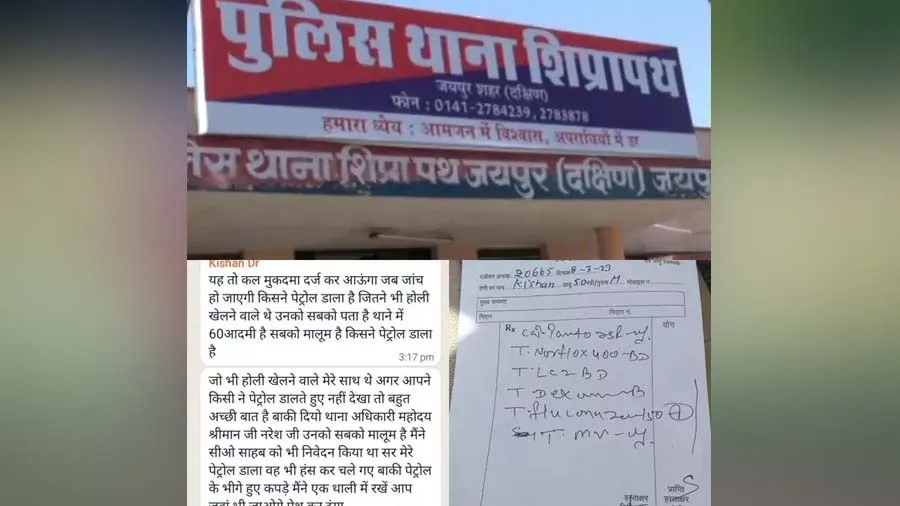 पुलिस थाना शिप्रापथ
जयपुर शहर (दक्षिण)
फोन : 0141-2784239, 2783878
हमारा ध्येय : आमजन में विश्वास, अपराधियों में डर
लिस थाना शिप्रा पथ जयपुर (दक्षिण) जयपु
Kishan Dr
यह तो कल मुकदमा दर्ज कर आऊंगा जब जांच
हो जाएगी किसने पेट्रोल डाला है जितने भी होली
खेलने वाले थे उनको सबको पता है थाने में
60आदमी है सबको मालूम है किसने पेट्रोल डाला
है
3:17 pm
जो भी होली खेलने वाले मेरे साथ थे अगर आपने
किसी ने पेट्रोल डालते हुए नहीं देखा तो बहुत
अच्छी बात है बाकी दियो थाना अधिकारी महोदय
श्रीमान जी नरेश जी उनको सबको मालूम है मैंने
सीओ साहब को भी निवेदन किया था सर मेरे
पेट्रोल डाला वह भी हंस कर चले गए बाकी पेट्रोल
के भीगे हुए कपड़े मैंने एक थाली में रखें आप
20665 दिनांक 8-3-23
Kishan आयु 50 M
मुख्य समस्या
निदान
निदान नं.
Rx
योग
T. Norflox 400-BD
T. LC2 BD
हस्ताक्षर